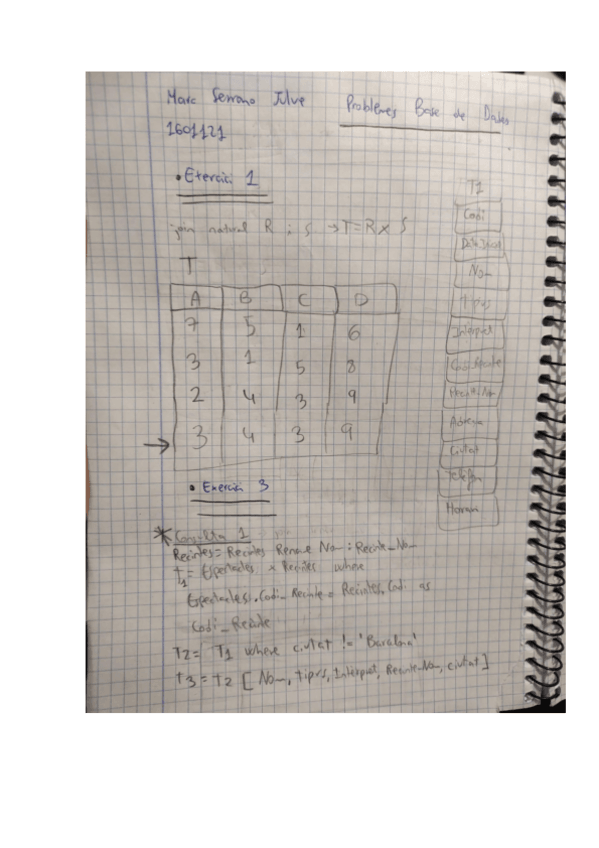 Marc Serrano Julve Problemes Base de Dades
1601121
• Exercici 1
join natural R i S → T = R x S
T
A B C D
7 5 1 6
3 1 5 8
2 4 3 9
→ 3 4 3 9
T1
Codi
Nom
Tipus
Interpret
Codi_Recinte
Recinte_Nom
Adreça
Ciutat
Telefon
Horari
• Exercici 3
* Consulta 1
Recintes = Recintes Rename Nom : Recinte_Nom
T1 = Espectacles x Recintes where
Espectacles.Codi_Recinte = Recintes.Codi as
Codi_Recinte
T2 = T1 where ciutat != 'Barcelona'
T3 = T2 [ Nom, tipus, Interpret, Recinte_Nom, ciutat ]